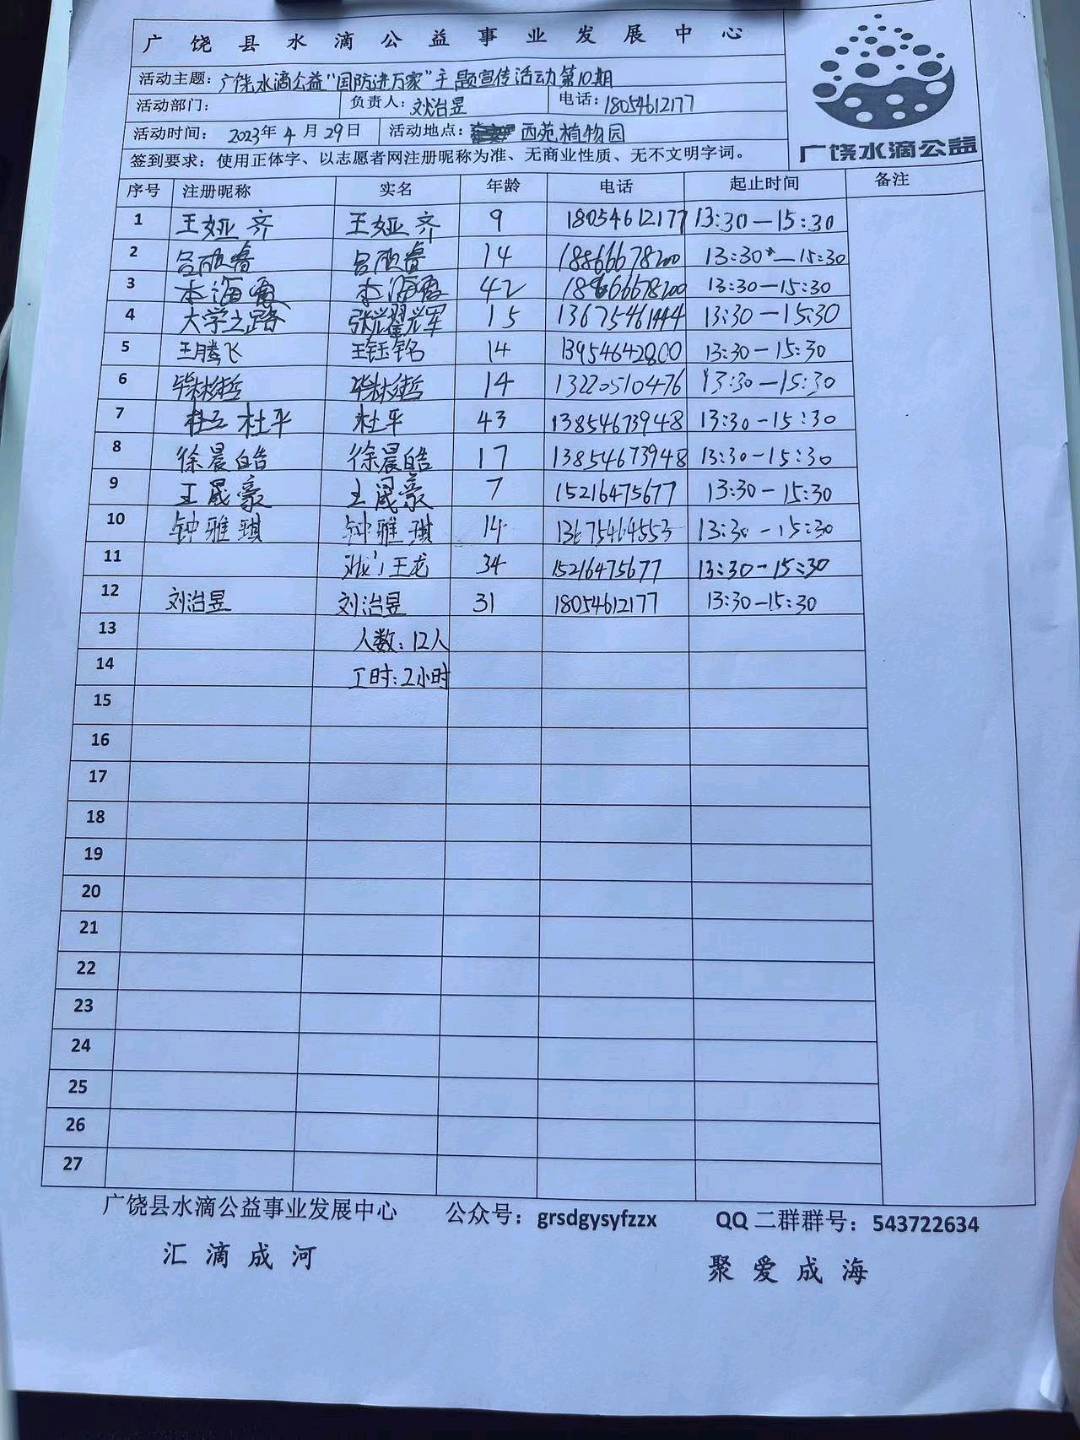 广饶县水滴公益事业发展中心
活动主题：广饶水滴公益"国防进万家"主题宣传活动第10期
活动部门： 负责人：刘治昱 电话：18054612177
活动时间： 2023年4月29日 活动地点： 西苑植物园
签到要求：使用正体字、以志愿者网注册昵称为准、无商业性质、无不文明字词。
广饶水滴公益
序号 注册昵称 实名 年龄 电话 起止时间 备注
1 王娅齐 王娅齐 9 18054612177 13:30—15:30
2 吕欣睿 吕欣睿 14 18866678200 13:30—15:30
3 海霞 海霞 42 18866678200 13:30—15:30
4 大学之路 张耀辉 15 13675461444 13:30—15:30
5 王腾飞 王钰铭 14 13954642800 13:30—15:30
6 14 13220510476 13:30—15:30
7 杜平 杜平 43 13854673948 13:30—15:30
8 徐晨皓 徐晨皓 17 13854673948 13:30—15:30
9 王晟豪 王晟豪 7 15216475677 13:30—15:30
10 钟雅琪 钟雅琪 14 13675464553 13:30—15:30
11 王龙 34 15216475677 13:30—15:30
12 刘治昱 刘治昱 31 18054612177 13:30—15:30
13 人数：12人
14 工时：2小时
15
16
17
18
19
20
21
22
23
24
25
26
27
广饶县水滴公益事业发展中心 公众号：grsdgysyfzzx QQ二群群号：543722634
汇滴成河 聚爱成海